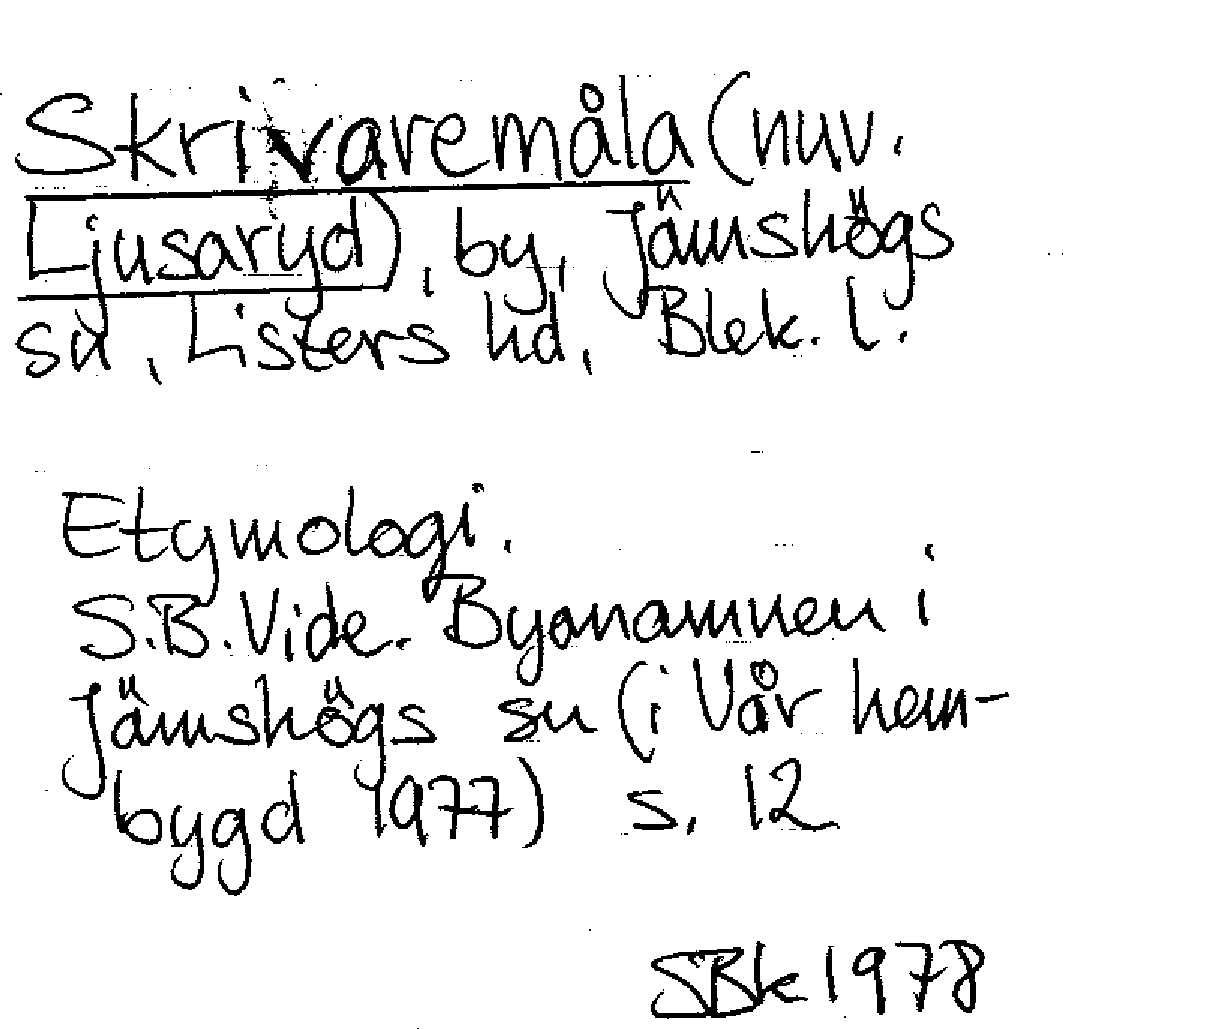 Skrivaremåla (nuv.
Ljusaryd), by, Jämshögs
sn, Listers hd, Blek. l.
Etymologi.
S.B. Vide. Byanamnen i
Jämshögs sn (i Vår hem-
bygd 1977) s. 12
SBk 1978